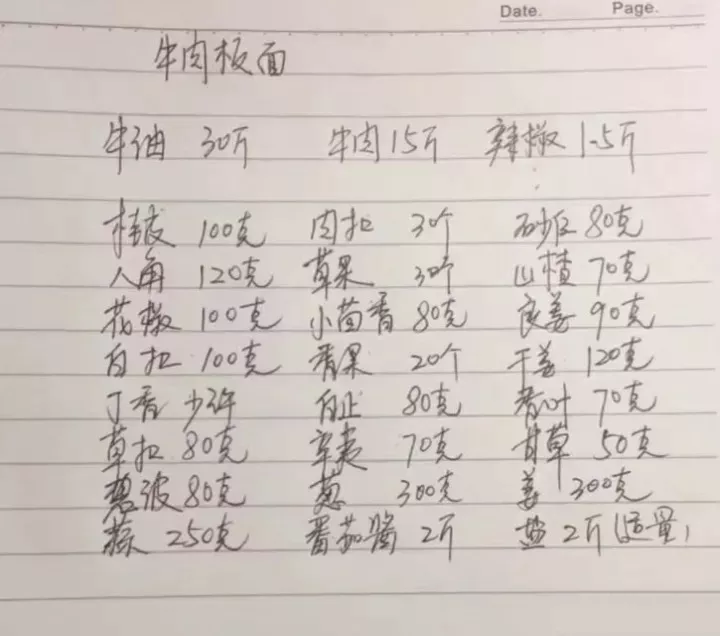 Date. Page.
牛肉板面
牛油 30斤 牛肉 15斤 辣椒 1.5斤
桂皮 100克 肉扣 30个 砂仁 80克
八角 120克 草果 30个 山楂 70克
花椒 100克 小茴香 80克 良姜 90克
白扣 100克 香果 20个 干姜 120克
丁香 少许 白止 80克 香叶 70克
草扣 80克 辛夷 70克 甘草 50克
荜波 80克 葱 300克 姜 300克
蒜 250克 番茄酱 2斤 盐 2斤(适量)